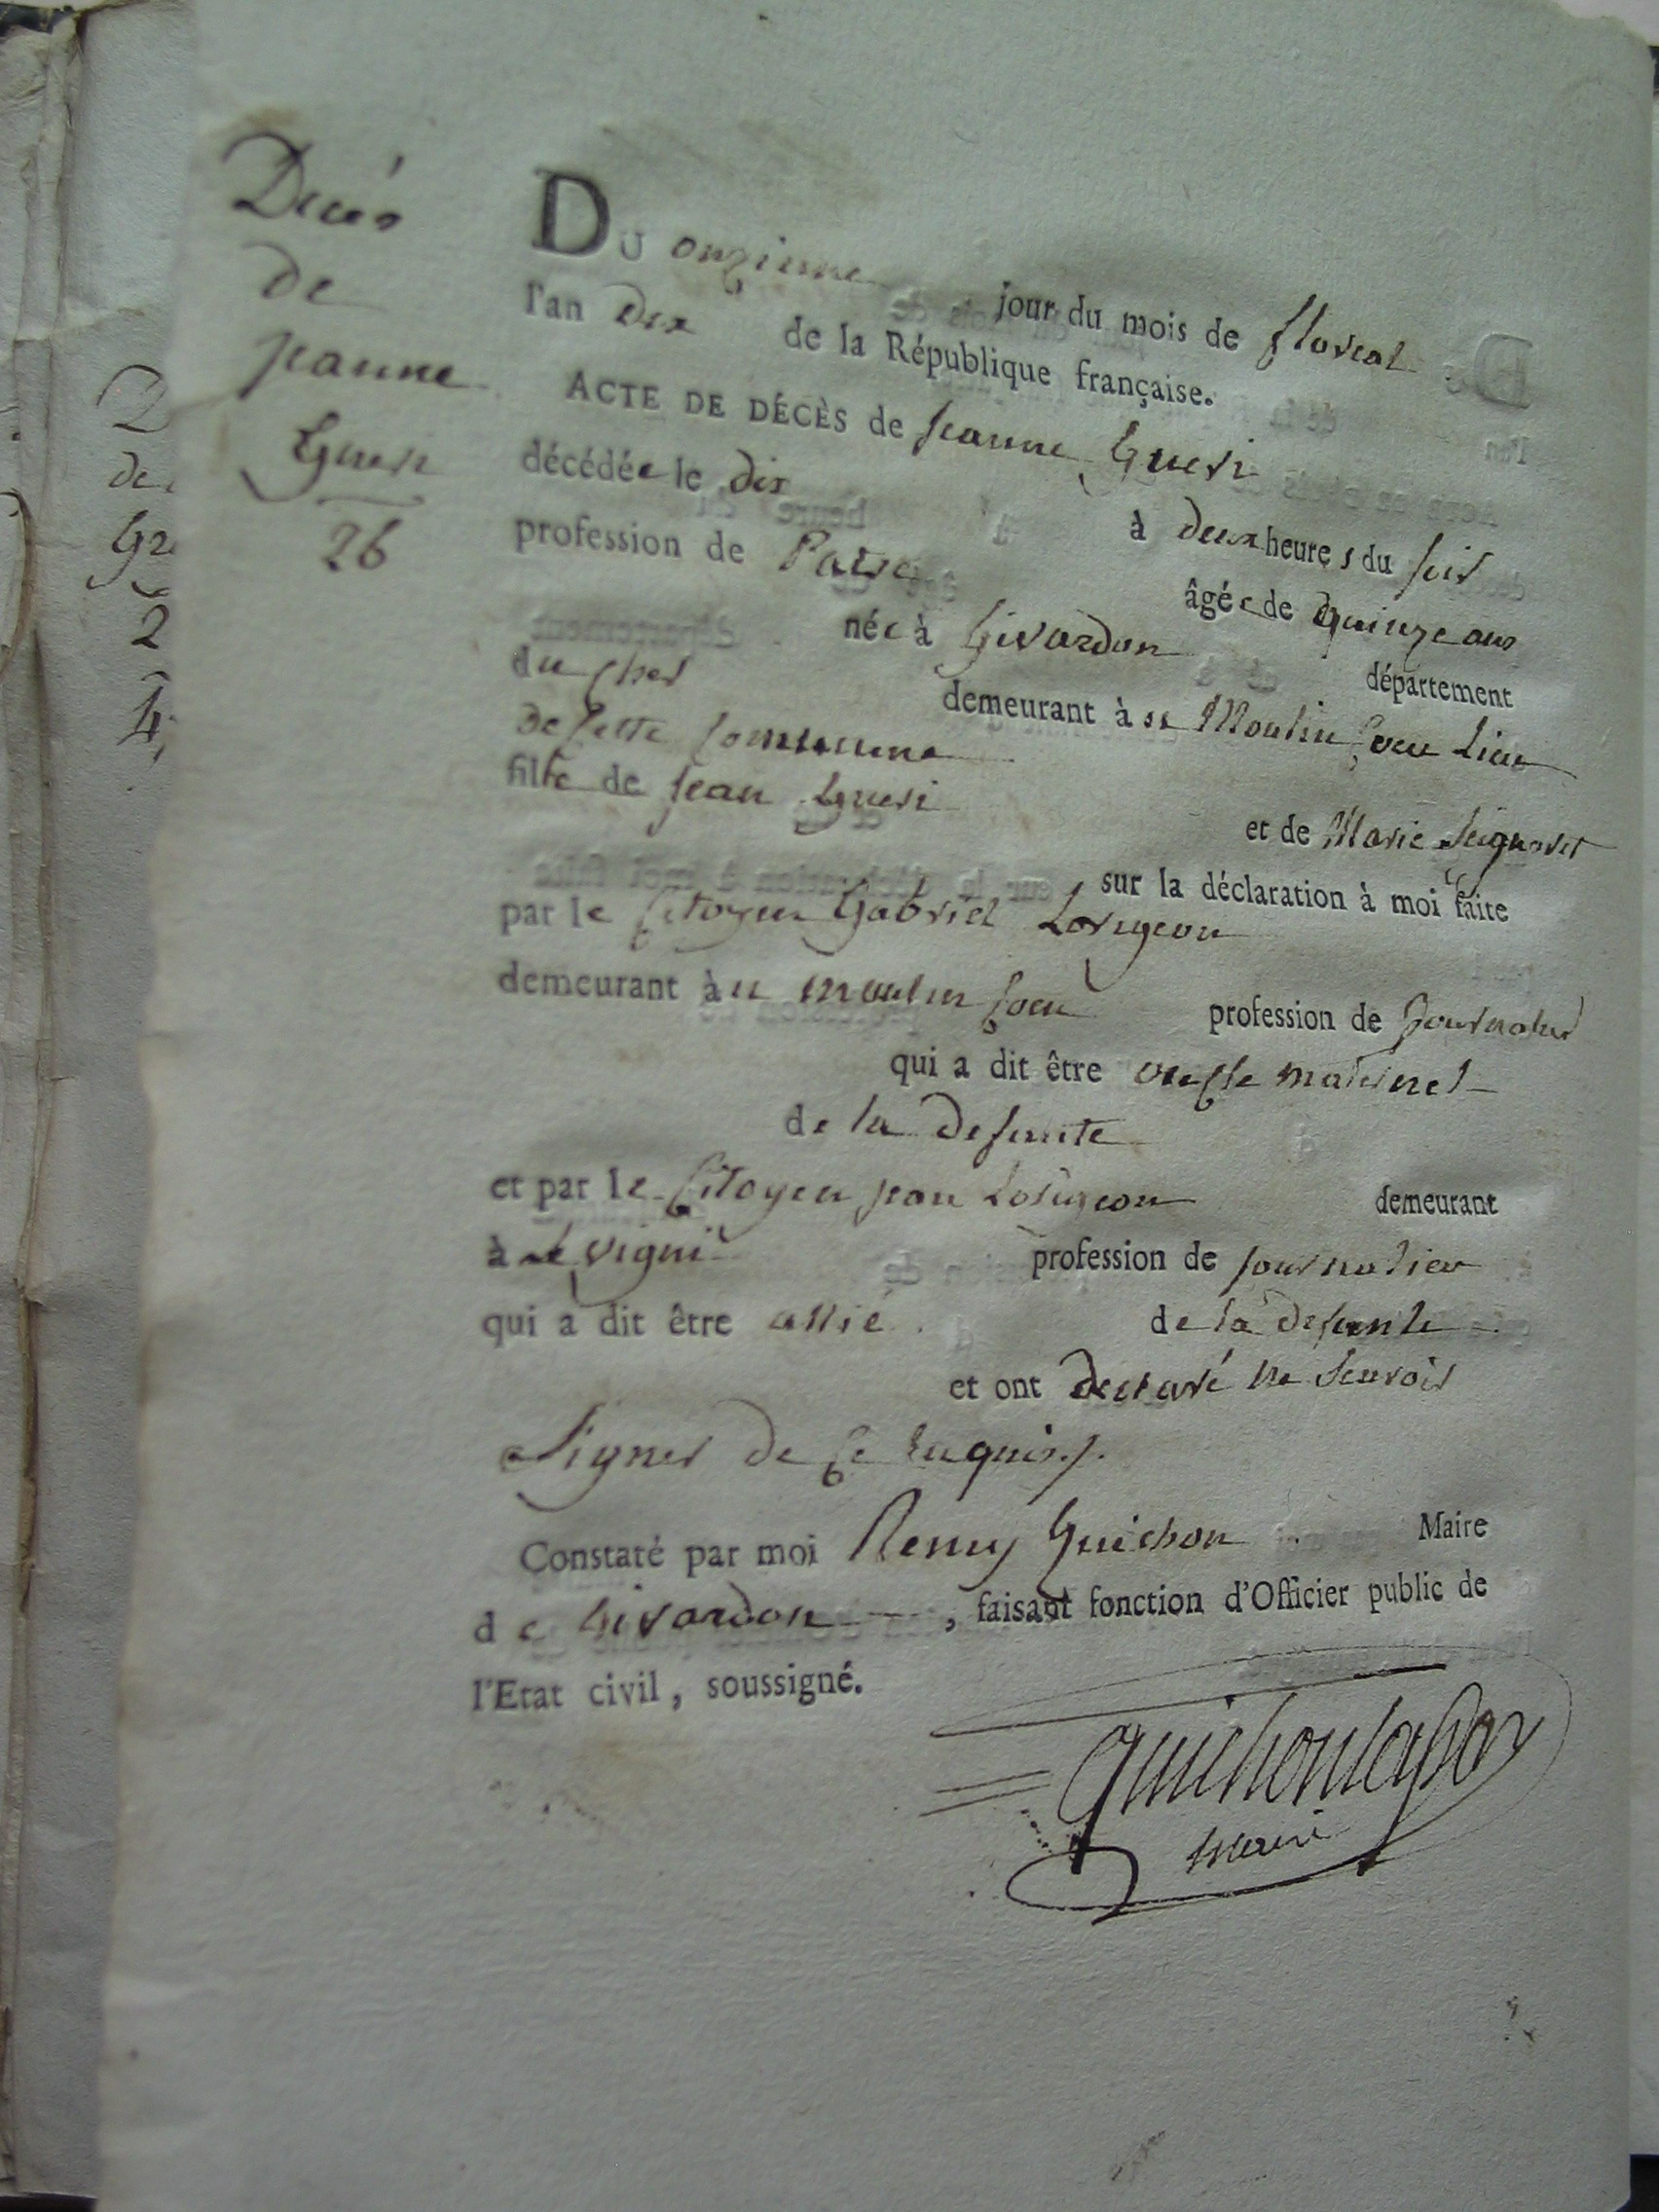 Décès
de
jeanne
Gueri
26
DU onzieme jour du mois de floreal
l'an dix de la République française.
ACTE DE DÉCÈS de jeanne Gueri
décédée le dix à deux heures du soir
profession de âgée de quinze ans
née à Givardon département
du cher demeurant à Moulin lieu
de cette commune
fille de jean Gueri et de Marie
sur la déclaration à moi faite
par le Citoyen Gabriel Lorigeon
demeurant au moulin profession de journalier
qui a dit être oncle maternel
de la defunte
et par le Citoyen jean Lorigeon demeurant
à profession de journalier
qui a dit être allié de la defunte
et ont declaré ne scavoir
signer de ce enquis./.
Constaté par moi Remy Guichon Maire
de Givardon, faisant fonction d'Officier public de
l'Etat civil, soussigné.
maire
D
de
2